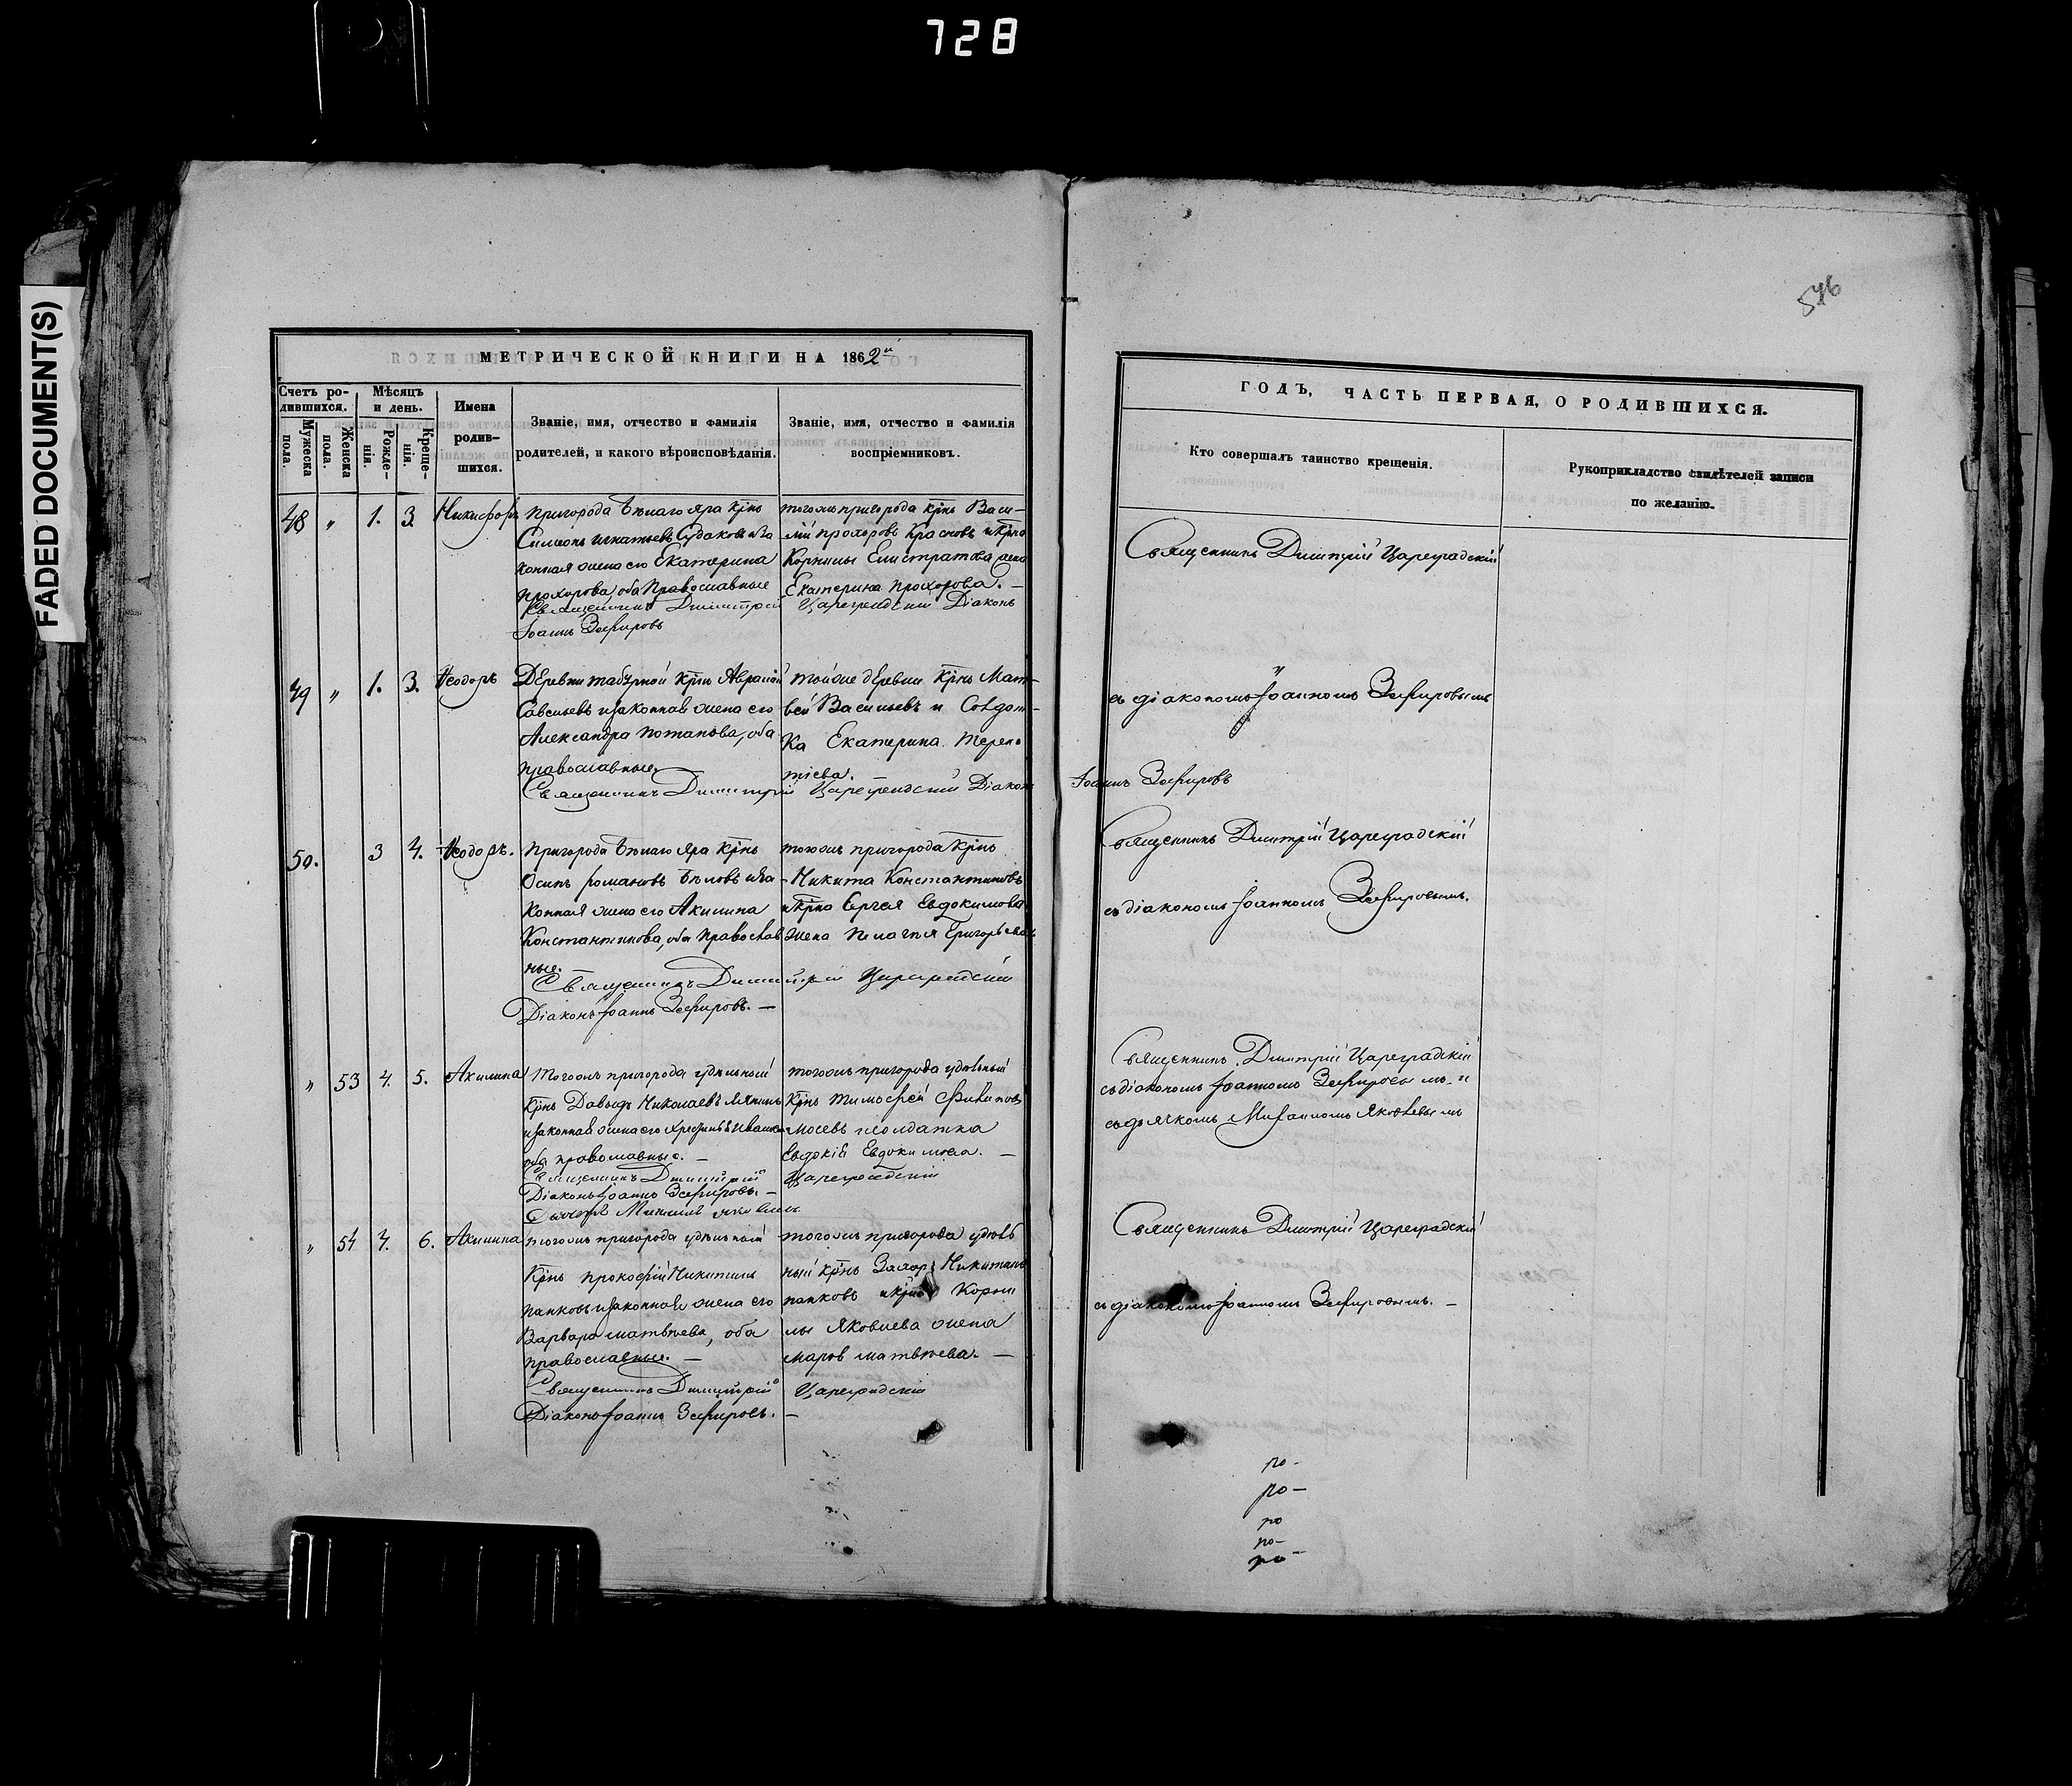 728
FADED DOCUMENT(S)
546
МЕТРИЧЕСКОЙ КНИГИ НА 1862й
Счетъ ро-
дившихся.
Мужеска
пола.
Женска
пола.
Мѣсяцъ
и день.
Рожде-
нія.
Креще-
нія.
Имена
родив-
шихся.
Званіе, имя, отчество и фамилія
родителей, и какого вѣроисповѣданія.
Званіе, имя, отчество и фамилія
воспріемниковъ.
48 " 1. 3. Никифоръ
Пригорода Бѣлаго Яра крнъ
Симеонъ Игнатьевъ Судаковъ и за
конная жена его Екатерина
Прохорова, оба Православные
Священникъ Димитрій Цареградскій Діаконъ
Іоаннъ Зефировъ
тогожъ пригорода крнъ Васи-
лій Прохоровъ Красновъ и крна
Корнилы Елистратова жена
Екатерина Прохорова. —
49 " 1. 3. Ѳеодоръ
Деревни Табурной крнъ Аврамій
Савельевъ и законная жена его
Александра Потапова, оба
православные. —
Священникъ Димитрій Цареградскій Діаконъ
Іоаннъ Зефировъ
тойже деревни крнъ Мат-
вей Васильевъ и Солдат-
ка Екатерина Терен-
тіева.
50. 3 4. Ѳеодоръ.
Пригорода Бѣлаго Яра крнъ
Осипъ Романовъ Бѣловъ и за-
конная жена его Акилина
Константинова, оба Православ
ные. —
Священникъ Димитрій Цареградскій
Діаконъ Іоаннъ Зефировъ. —
тогожъ пригорода крнъ
Никита Константиновъ
и крна Сергея Евдокимова
жена Пелагия Григорьева
" 53 4. 5. Акилина
Тогожъ пригорода удѣльный
крнъ Давыдъ Николаевъ
и законная жена его
оба православные. —
Священникъ Димитрій Цареградскій
Діаконъ Іоаннъ Зефировъ. —
тогожъ пригорода удѣльный
крнъ Тимофей Филиповъ
Мосевъ и солдатка
Евдокія Евдокимова. —
" 54 4. 6. Акилина
тогожъ пригорода удѣльный
крнъ Прокофій Никитинъ
Панковъ и законная жена его
Варвара Матвѣева, оба
православные. —
Священникъ Димитрій Цареградскій
Діаконъ Іоаннъ Зефировъ. —
тогожъ пригорода удѣль
ный крнъ Захаръ Никитинъ
Панковъ и крна Корни
лы Яковлева жена
Матвѣева. —
ГОДЪ, ЧАСТЬ ПЕРВАЯ, О РОДИВШИХСЯ.
Кто совершалъ таинство крещенія.
Рукоприкладство свидѣтелей записи
по желанію.
Священникъ Димитрій Цареградскій
"
съ діакономъ Іоанномъ Зефировымъ
Священникъ Димитрій Цареградскій
съ діакономъ Іоанномъ Зефировымъ.
Священникъ Димитрій Цареградскій
съ діакономъ Іоанномъ Зефировымъ и
съ дьячкомъ Михаиломъ Яковлевымъ
Священникъ Димитрій Цареградскій
съ діакономъ Іоанномъ Зефировымъ. —
ро-
ро-
ро
ро-
ро-